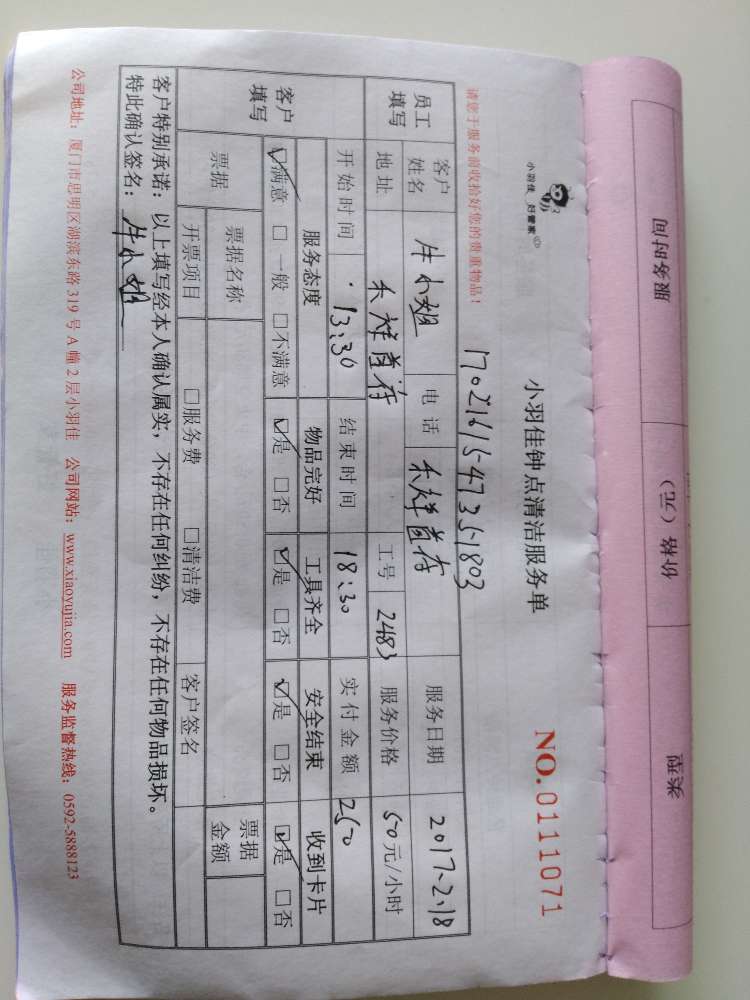 服务时间 价格（元） 类型
小羽佳 好管家
小羽佳钟点清洁服务单
NO.0111071
请您于服务前收拾好您的贵重物品！
170216154735-1803
员工填写 客户姓名 牛小姐 电话 禾祥首府 服务日期 2017-2.18
地址 禾祥首府 工号 2483 服务价格 50元/小时
开始时间 13:30 结束时间 18:30 实付金额 250
客户填写 服务态度 物品完好 工具齐全 安全结束 收到卡片
☑满意 □一般 □不满意 ☑是 □否 ☑是 □否 ☑是 □否 ☑是 □否
票据 票据名称 票据金额
开票项目 □服务费 □清洁费 客户签名
客户特别承诺：以上填写经本人确认属实，不存在任何纠纷，不存在任何物品损坏。
特此确认签名：牛小姐
公司地址：厦门市思明区湖滨东路319号A幢2层小羽佳 公司网站：www.xiaoyujia.com 服务监督热线：0592-5888123